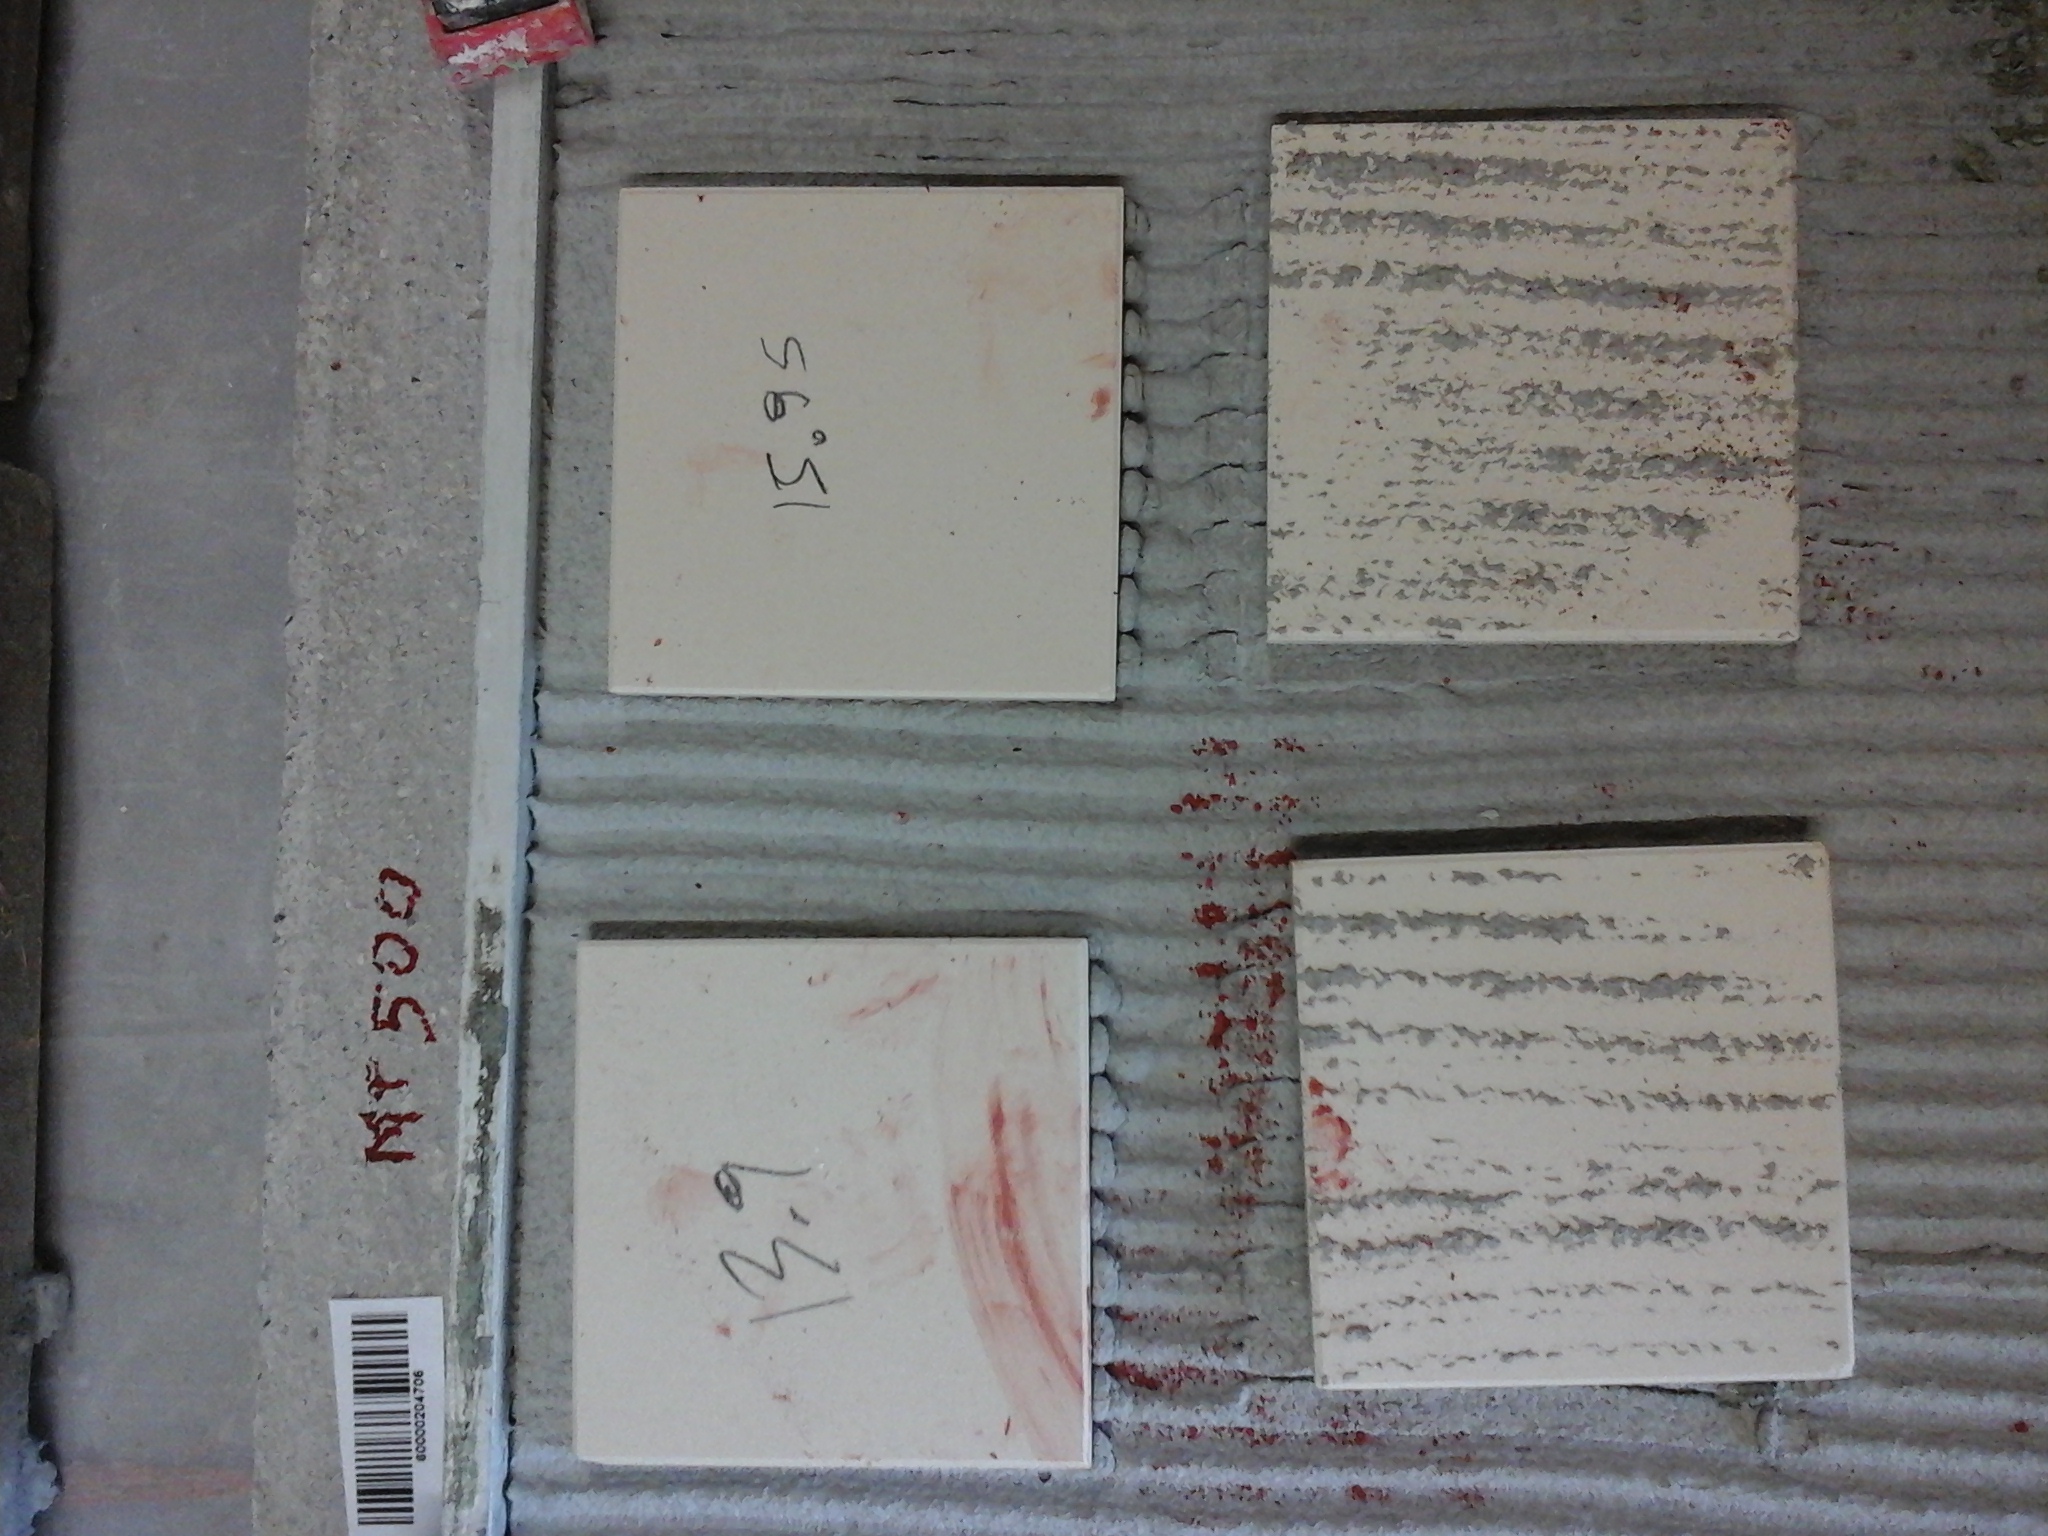 60000204706
MT 500
13.9
15.95